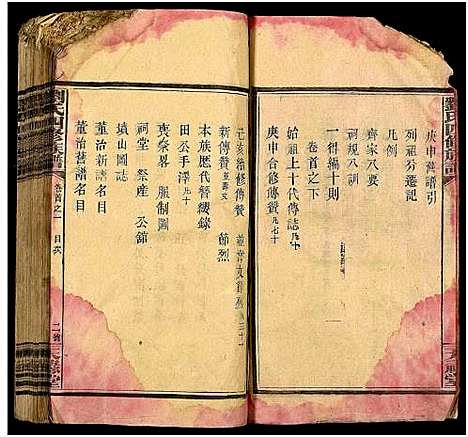 劉氏四修族譜
庚申舊譜引
列祖分遷記
凡例
齊家八要
祠規八訓
一得編十則
卷首之下
始祖上十代傳誌
庚申合修傳贊
新傳贊 節烈
本族歷代簪纓錄
田公手澤
喪祭畧 服制圖
祠堂 祭產 公館
墳山圖誌
董治新譜名目
董治舊譜名目
劉氏四修族譜
卷首之一 目次